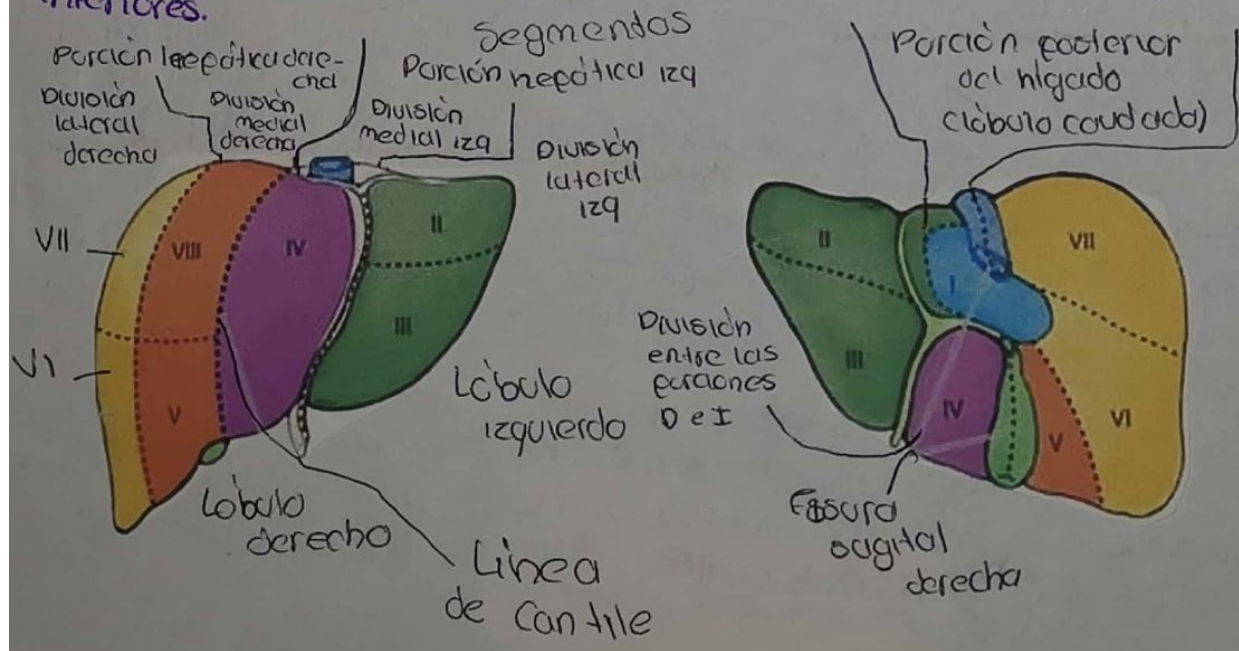 inferiores.
Segmendos
Porción hepática dere-
cha
Porción hepática izq
División
lateral
derecha
División
medial
derecha
División
medial izq
División
lateral
izq
VII
VI
VIII
V
IV
II
III
Lóbulo
derecho
Lóbulo
izquierdo
Linea
de Cantile
Porción posterior
del hígado
(lóbulo caudado)
II
III
I
VII
VI
IV
V
División
entre las
porciones
D e I
Fisura
sagital
derecha